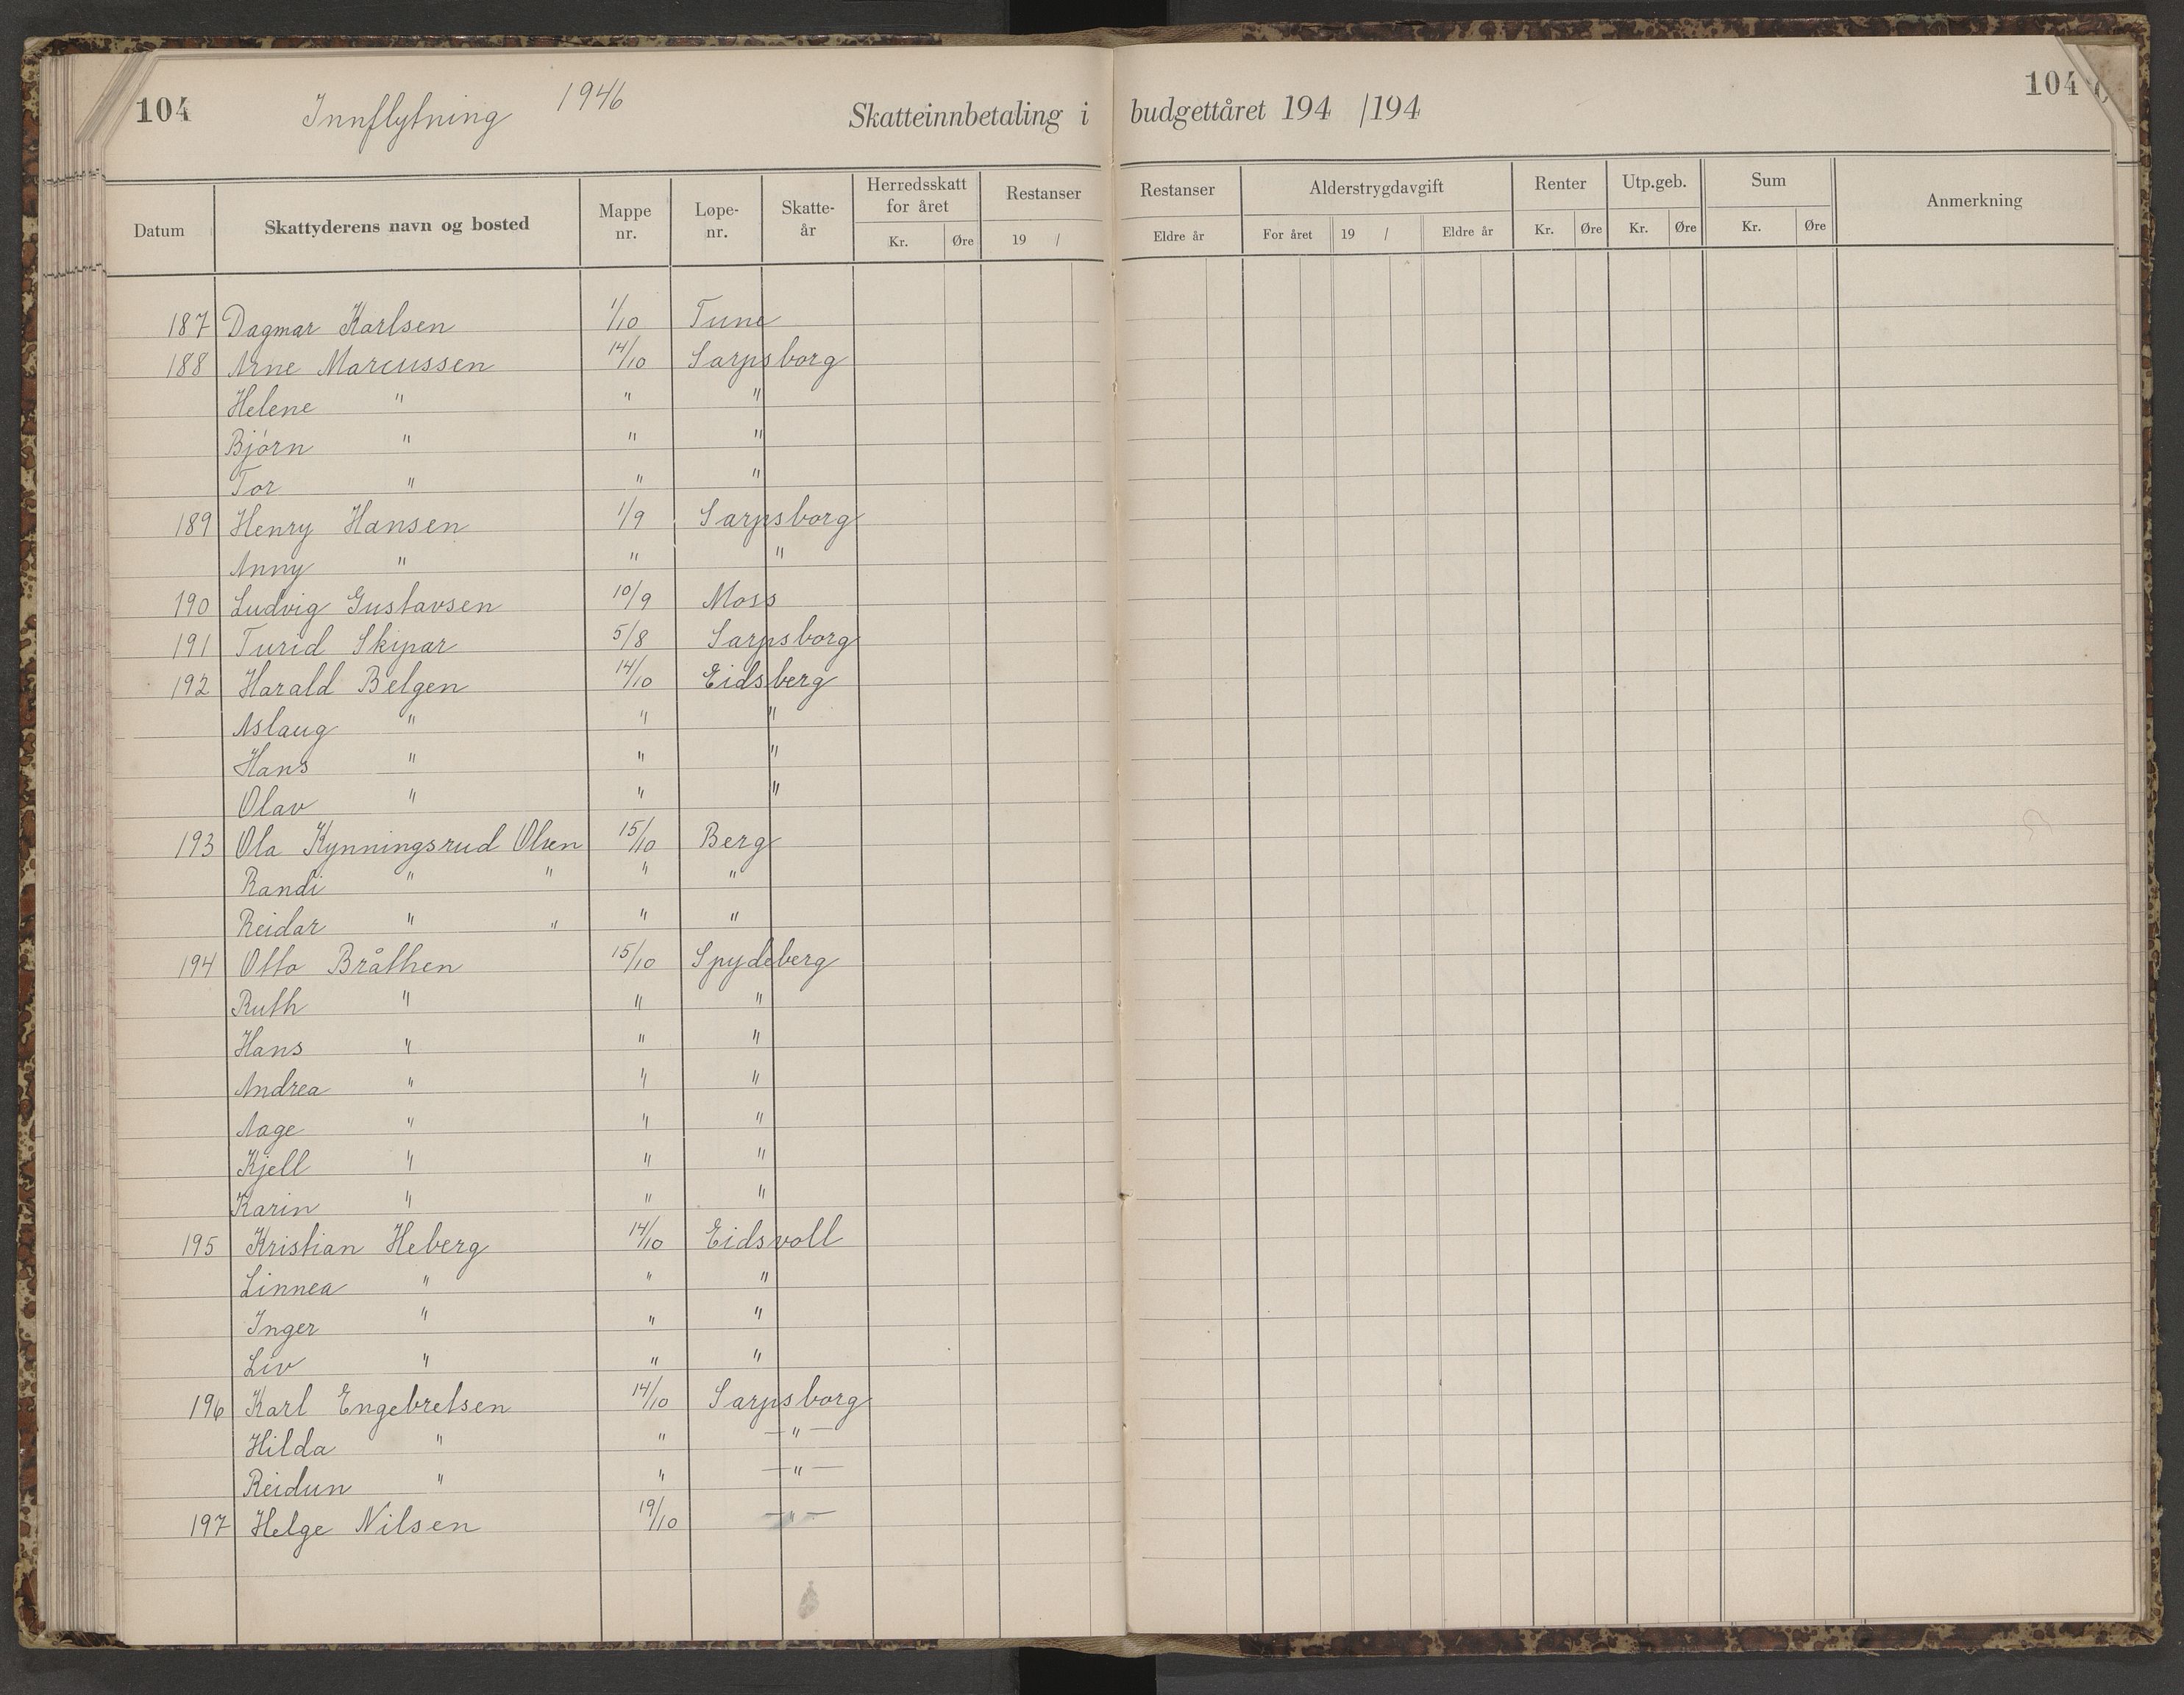 104 Innflytning 1946 Skatteinnbetaling i budgettåret 194 /194 104
Datum Skattyderens navn og bosted Mappe nr. Løpe-nr. Skatte-år Herredsskatt for året Restanser Restanser Alderstrygdavgift Renter Utp.geb. Sum Anmerkning
Kr. Øre 19 / Eldre år For året 19 / Eldre år Kr. Øre Kr. Øre Kr. Øre
187 Dagmar Karlsen 1/10 Tune
188 Arne Marcussen 14/10 Sarpsborg
Helene " " "
Bjørn " " "
Tor " " "
189 Henry Hansen 1/9 Sarpsborg
Anny " " "
190 Ludvig Gustavsen 10/9 Moss
191 Turid Skipar 5/8 Sarpsborg
192 Harald Belgen 14/10 Eidsberg
Aslaug " " "
Hans " " "
Olav " " "
193 Ola Kynningsrud Olsen 15/10 Berg
Randi " " " "
Reidar " " " "
194 Otto Bråthen 15/10 Spydeberg
Ruth " " "
Hans " " "
Andrea " " "
Aage " " "
Kjell " " "
Karin " " "
195 Kristian Heberg 14/10 Eidsvoll
Linnea " " "
Inger " " "
Liv " " "
196 Karl Engebretsen 14/10 Sarpsborg
Hilda " " — " —
Reidun " " — " —
197 Helge Nilsen 19/10 — " —